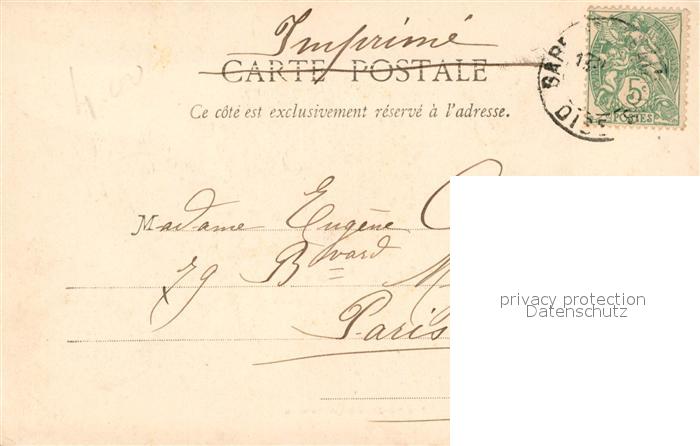 Imprimé
CARTE POSTALE
Ce côté est exclusivement réservé à l'adresse.
GARE
OISE
5c
POSTES
Madame Eugène
79 Bvard
Paris
privacy protection
Datenschutz